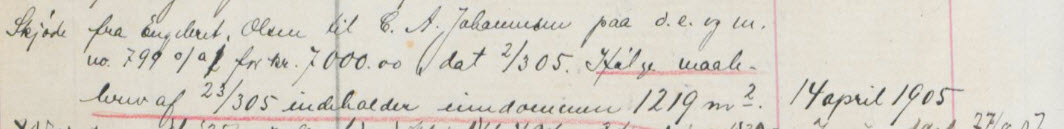 Skjøde fra Engebret Olsen til C. A. Johannesen paa d. e. og m.
no. 799 o/a for kr. 7000.00, dat 2/3 05. Ifølge maale-
brev af 23/3 05 indeholder eiendommen 1219 m². 14 april 1905
27/